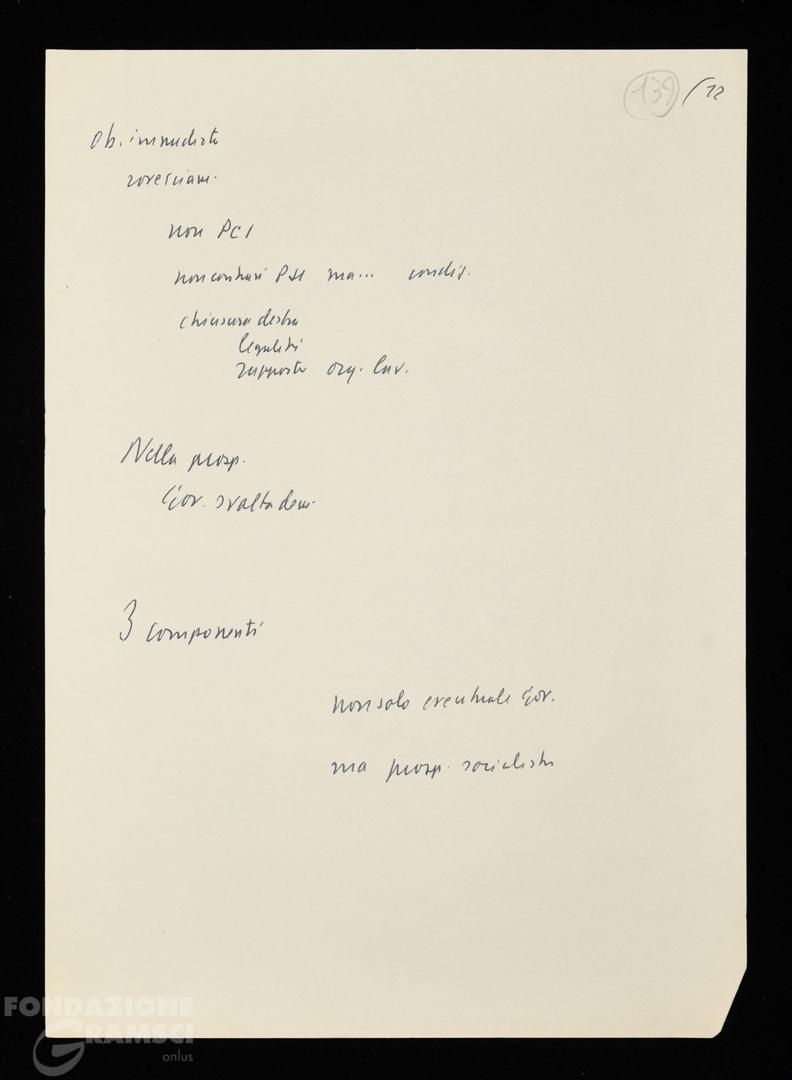 139 /12
Ob. immediato
rovesciam.
non PCI
non contrari PSI ma... condiz.
chiusura destra
legalità
rapporto org. lav.
Nella prosp.
Gov. svolta dem.
3 componenti
non solo eventuale Gov.
ma prosp. socialista
FONDAZIONE
GRAMSCI
onlus